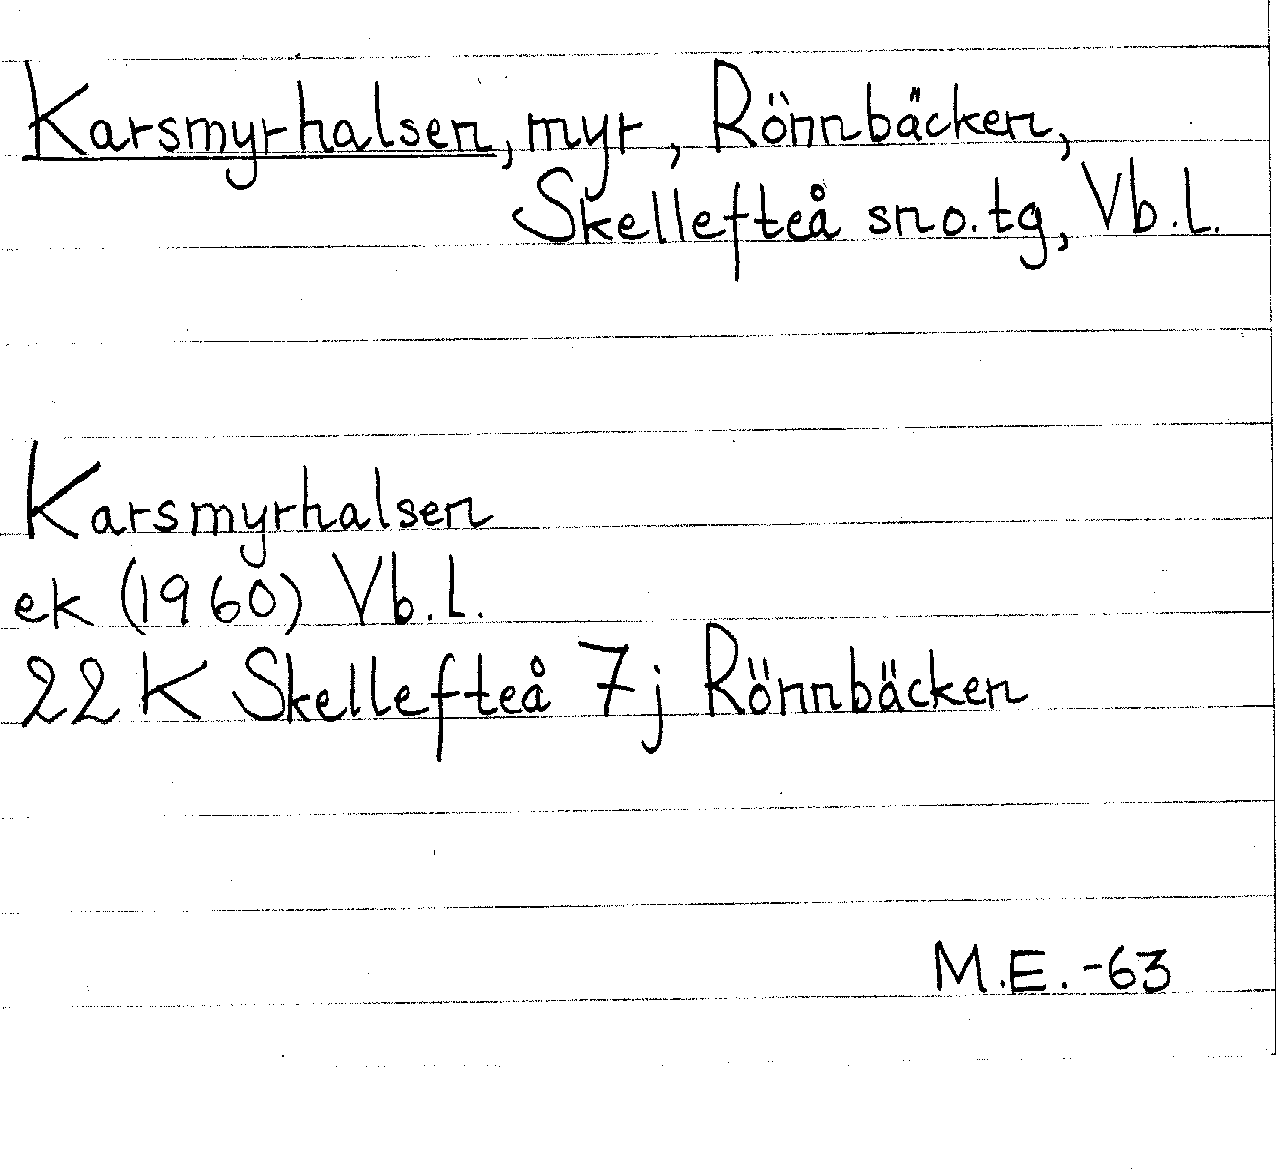 Karsmyrhalsen, myr, Rönnbäcken,
Skellefteå sno.tg, Vb.L.
Karsmyrhalsen
ek (1960) Vb.L.
22 K Skellefteå 7j Rönnbäcken
M.E.-63